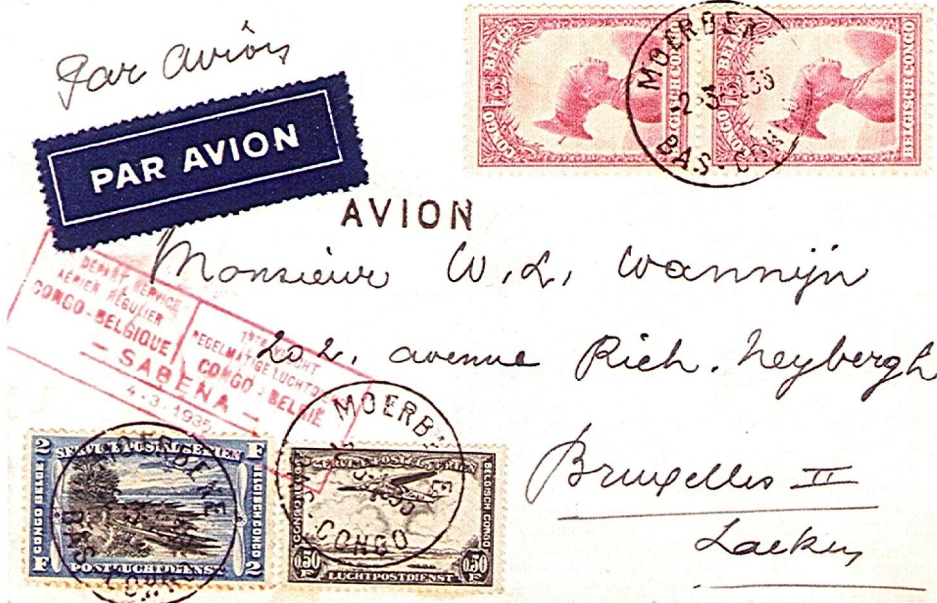 Par avion
PAR AVION
CONGO BELGE
BELGISCH CONGO
CONGO BELGE
MOERBEKE
-2-3-
BAS-CONGO
AVION
Monsieur W. L. Wannijn
202. avenue Rich. Neybergh
Bruxelles II
Laeken
DÉPART SERVICE
AÉRIEN RÉGULIER
CONGO-BELGIQUE
1STE VLUCHT
REGELMATIGE LUCHTD
CONGO-BELGIË
- SABENA -
4-3-1935
2 F
SERVICE POSTAL AERIEN
CONGO BELGE
BELGISCH CONGO
POSTLUCHTDIENST
F 2
MOERBEKE
BAS CONGO
MOERBEKE
CONGO
SERVICE POSTAL AERIEN
CONGO BELGE
BELGISCH CONGO
0.50 F
0.50 F
LUCHTPOSTDIENST